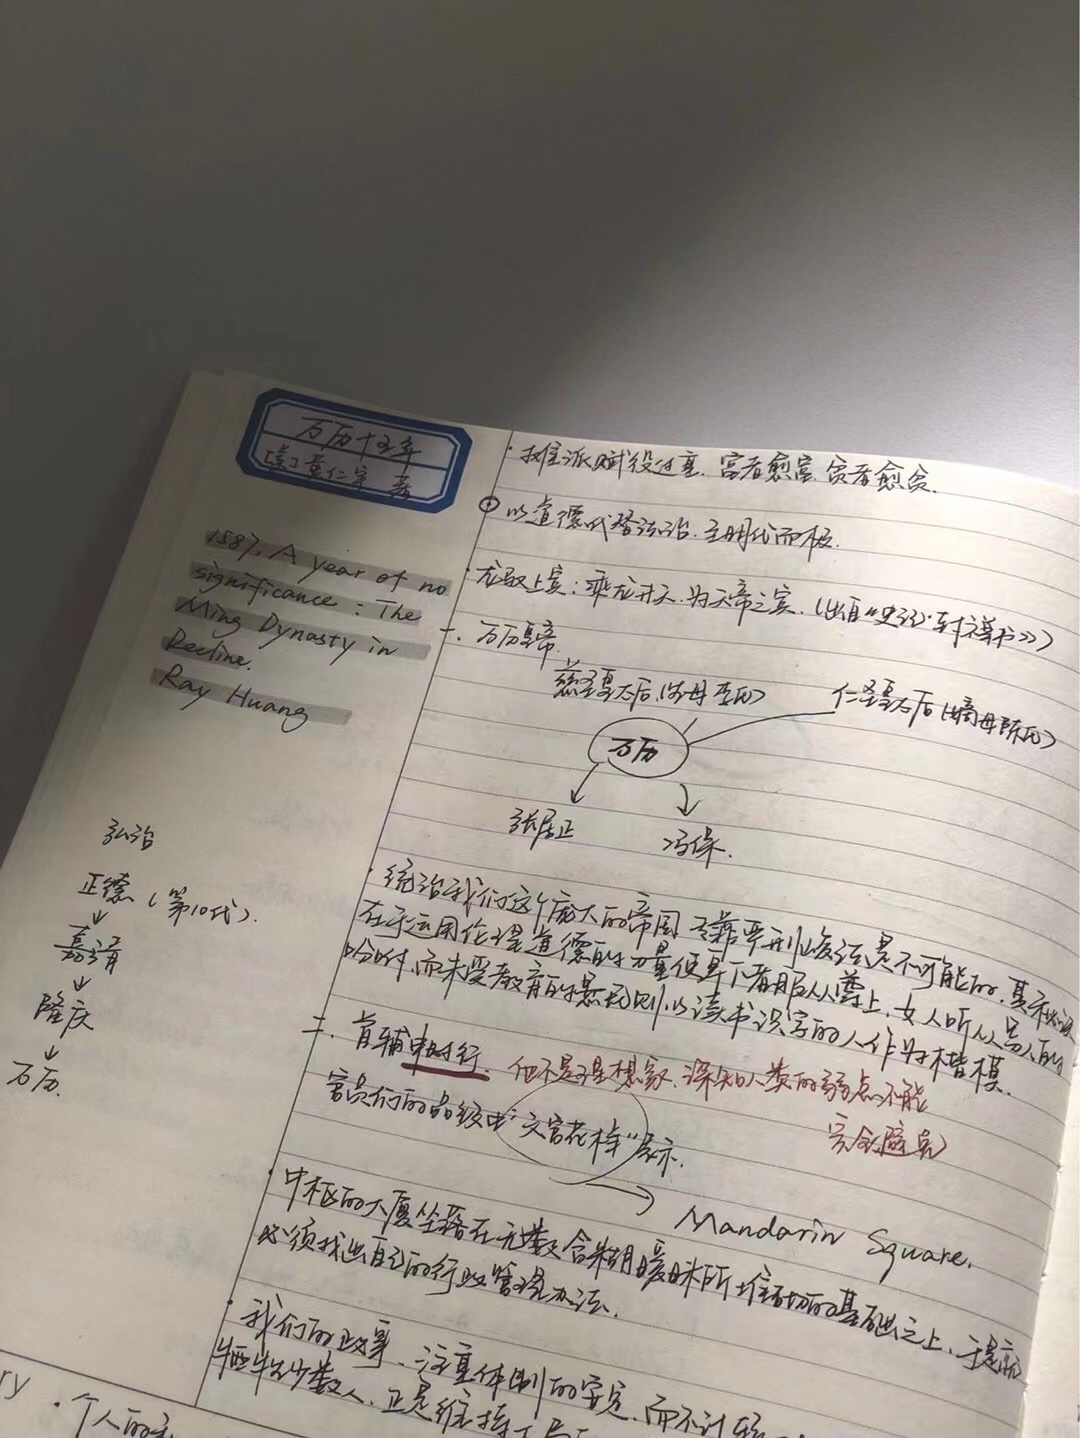 万历十五年
[美] 黄仁宇 著
1587, A year of no
significance: The
Ming Dynasty in
Decline.
Ray Huang
弘治
正德(第10代).
嘉靖
隆庆
万历.
· 摊派赋役过重. 富者愈富, 贫者愈贫.
以道德代替法治. 至明代而极.
· 龙驭上宾: 乘龙升天. 为天帝之宾. (出自《史记·封禅书》)
一. 万历皇帝
慈圣皇太后(生母 李氏)
仁圣皇太后(嫡母 陈氏)
万历
张居正
冯保.
· 统治我们这个庞大的帝国 专靠严刑峻法是不可能的. 其秘诀
在于运用伦理道德的力量使卑下者服从尊上, 女人听从男人的
吩咐, 而未受教育的愚民则以读书识字的人作为楷模.
二. 首辅申时行. 他不是理想家. 深知人类的弱点不能
完全避免
官员们的品级由"文官花样"表示.
Mandarin Square.
· 中枢的大厦坐落在无数含糊暧昧所堆砌的基础之上, 于是就
必须找出自己的行政管理办法.
· 我们的政事, 注重体制的安定, 而不计
牺牲少数人, 正是维持
ry
· 个人的